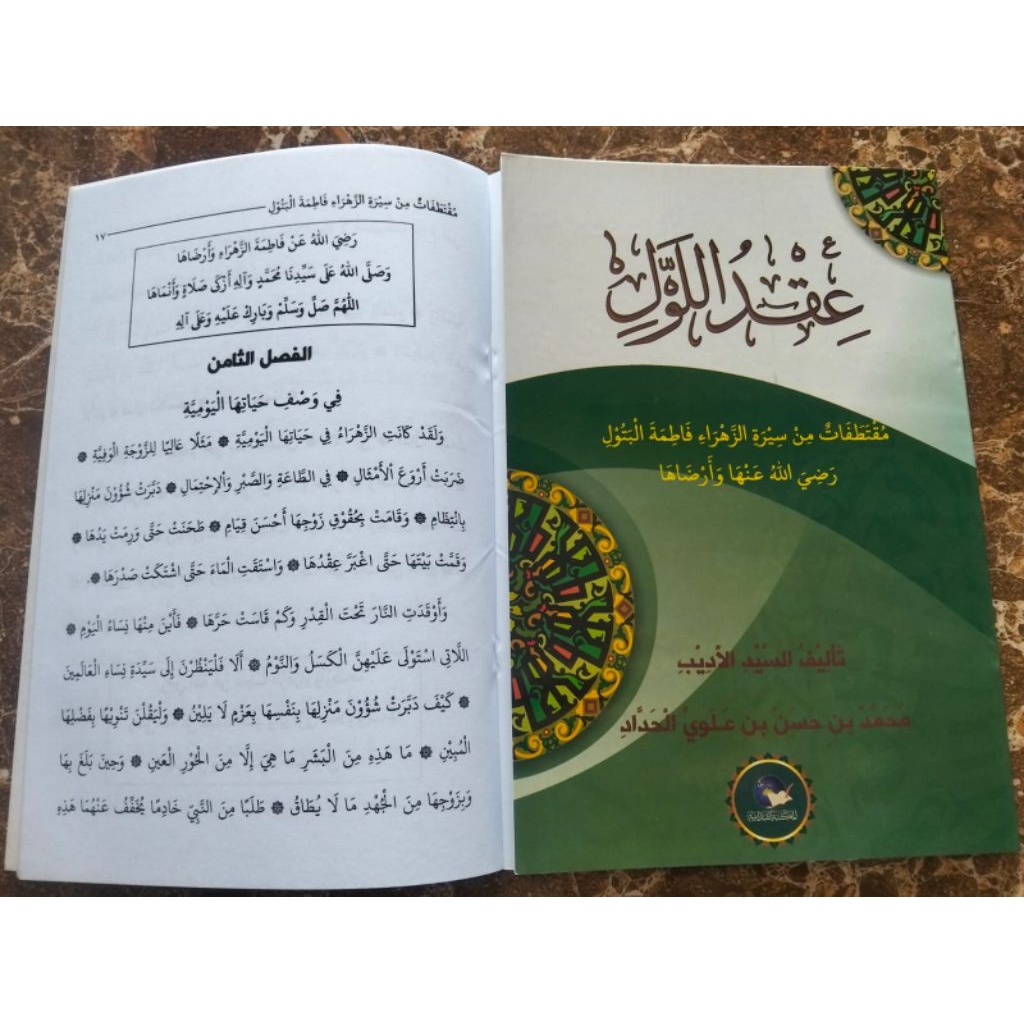 مُقْتَطَفَاتٌ مِنْ سِيْرَةِ الزَّهْرَاءِ فَاطِمَةَ الْبَتُوْلِ
١٧
رَضِيَ اللهُ عَنْ فَاطِمَةَ الزَّهْرَاءِ وَأَرْضَاهَا
وَصَلَّى اللهُ عَلَى سَيِّدِنَا مُحَمَّدٍ وَآلِهِ أَزْكَى صَلَاةٍ وَأَنْمَاهَا
اللّٰهُمَّ صَلِّ وَسَلِّمْ وَبَارِكْ عَلَيْهِ وَعَلَى آلِهِ
الفصل الثامن
فِي وَصْفِ حَيَاتِهَا الْيَوْمِيَّةِ
وَلَقَدْ كَانَتِ الزَّهْرَاءُ فِي حَيَاتِهَا الْيَوْمِيَّةِ ۞ مَثَلًا عَالِيًا لِلزَّوْجَةِ الْوَفِيَّةِ ۞
ضَرَبَتْ أَرْوَعَ الْأَمْثَالِ ۞ فِي الطَّاعَةِ وَالصَّبْرِ وَالْاِحْتِمَالِ ۞ دَبَّرَتْ شُؤُوْنَ مَنْزِلِهَا
بِانْتِظَامٍ ۞ وَقَامَتْ بِحُقُوْقِ زَوْجِهَا أَحْسَنَ قِيَامٍ ۞ طَحَنَتْ حَتَّى وَرِمَتْ يَدُهَا ۞
وَقَمَّتْ بَيْتَهَا حَتَّى اغْبَرَّ عِقْدُهَا ۞ وَاسْتَقَتِ الْمَاءَ حَتَّى اشْتَكَتْ صَدْرَهَا ۞.
وَأَوْقَدَتِ النَّارَ تَحْتَ الْقِدْرِ وَكَمْ قَاسَتْ حَرَّهَا ۞ فَأَيْنَ مِنْهَا نِسَاءُ الْيَوْمِ ۞
اللَّاتِي اسْتَوْلَى عَلَيْهِنَّ الْكَسَلُ وَالنَّوْمُ ۞ أَلَا فَلْيَنْظُرْنَ إِلَى سَيِّدَةِ نِسَاءِ الْعَالَمِينَ
۞ كَيْفَ دَبَّرَتْ شُؤُوْنَ مَنْزِلِهَا بِنَفْسِهَا بِعَزْمٍ لَا يَلِيْنُ ۞ وَلْيَقُلْنَ تَنْوِيْهًا بِفَضْلِهَا
الْمُبِيْنِ ۞ مَا هَذِهِ مِنَ الْبَشَرِ مَا هِيَ إِلَّا مِنَ الْحُوْرِ الْعِيْنِ ۞ وَحِينَ بَلَغَ بِهَا
وَبِزَوْجِهَا مِنَ الْجُهْدِ مَا لَا يُطَاقُ ۞ طَلَبًا مِنَ النَّبِيِّ خَادِمًا يُخَفِّفُ عَنْهُمَا هَذِهِ
عِقْدُ اللَّوَّلِ
مُقْتَطَفَاتٌ مِنْ سِيْرَةِ الزَّهْرَاءِ فَاطِمَةَ الْبَتُوْلِ
رَضِيَ اللهُ عَنْهَا وَأَرْضَاهَا
تَأْلِيْفُ السَّيِّدِ الْأَدِيْبِ
مُحَمَّدْ بِنْ حَسَنْ بِنْ عَلَوِيْ الْحَدَّادِ